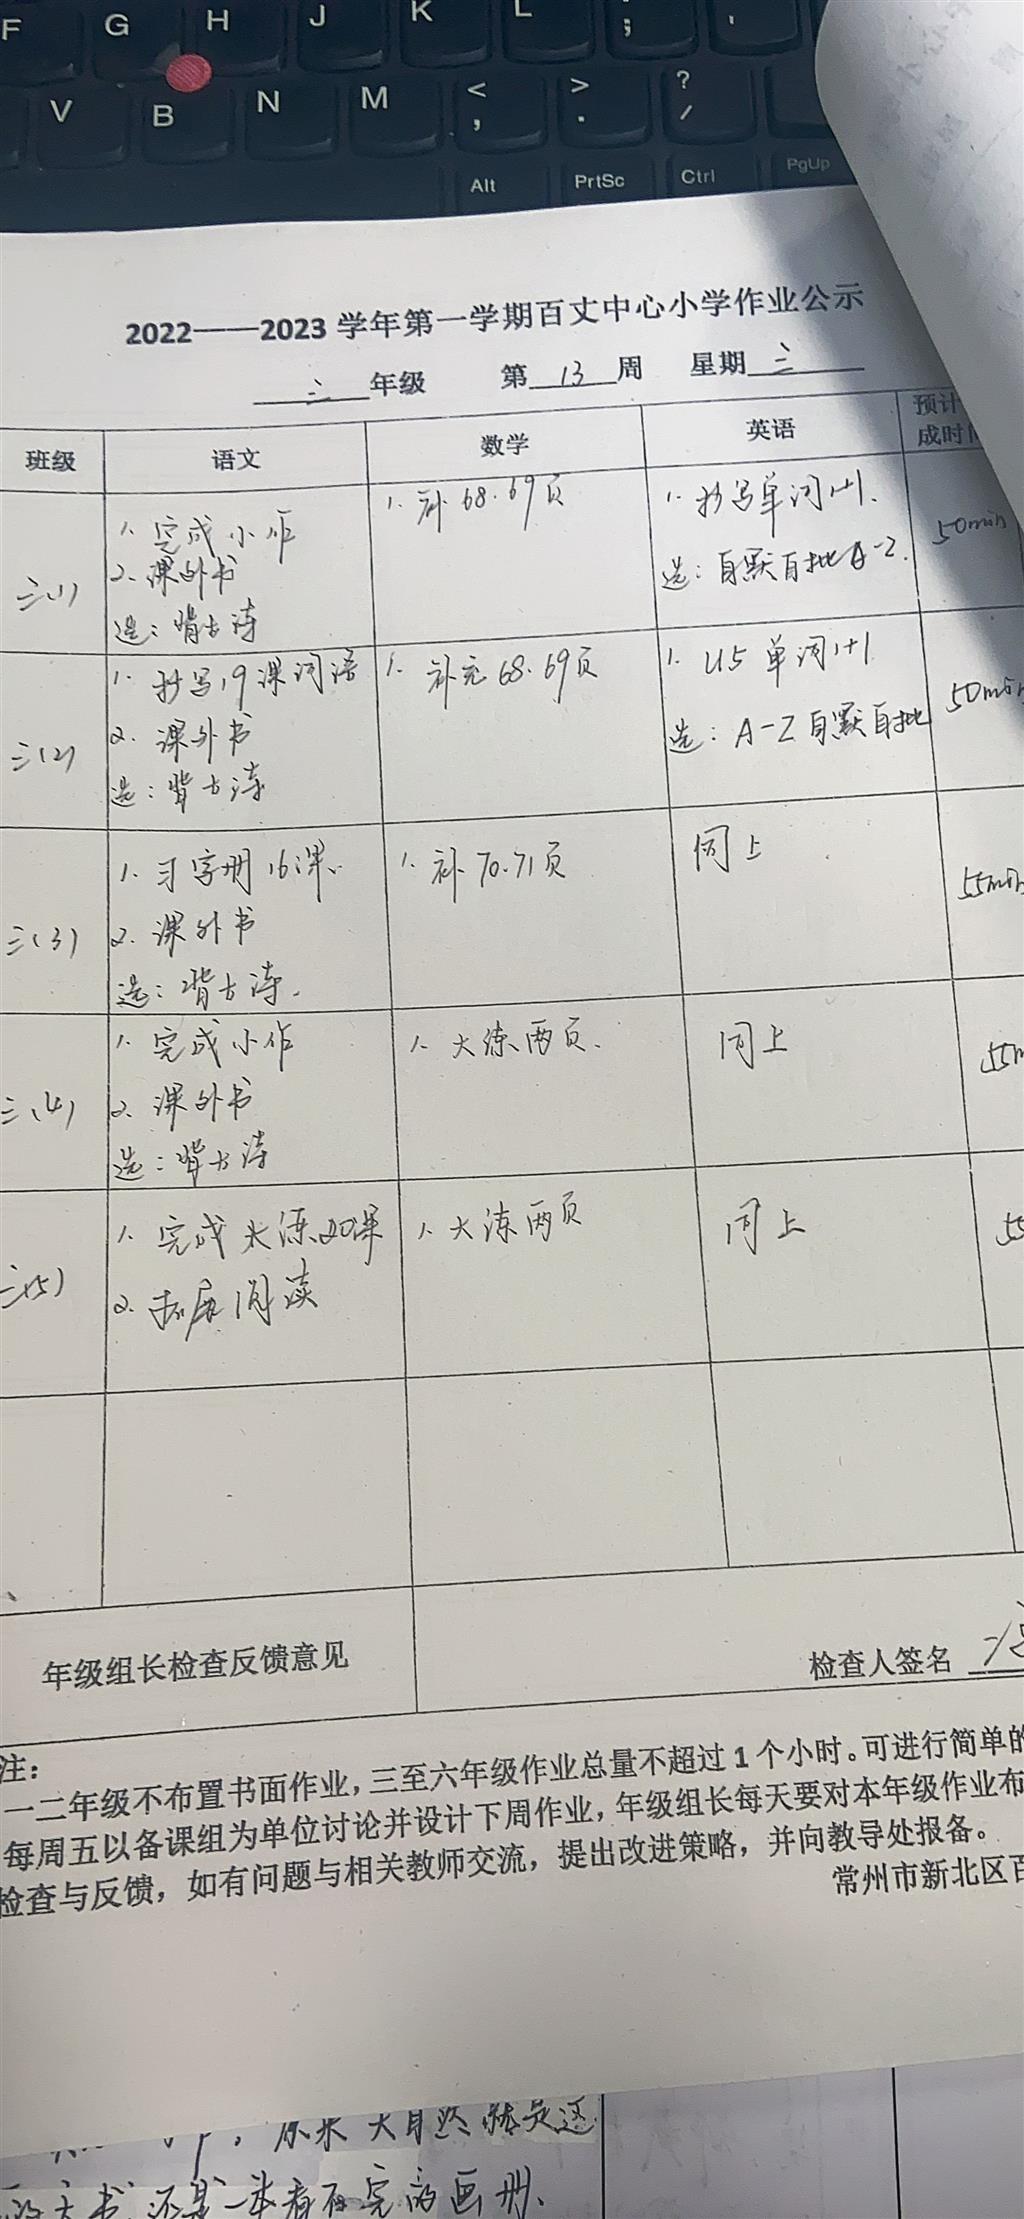 F G H J K L ;
V B N M < , > . ? /
Alt PrtSc Ctrl PgUp
2022——2023 学年第一学期百丈中心小学作业公示
三 年级 第 13 周 星期 三
班级 语文 数学 英语 预计
成时间
三(1)
1. 完成小作
2. 课外书
选：背古诗
1. 补 68.69页
1. 抄写单词1+1.
选：自默自批A-Z.
50min
三(2)
1. 抄写19课词语
2. 课外书
选：背古诗
1. 补充68.69页
1. U5 单词1+1
选：A-Z自默自批
50min
三(3)
1. 习字册16课.
2. 课外书
选：背古诗.
1. 补70.71页
同上
55min
三(4)
1. 完成小作
2. 课外书
选：背古诗
1. 大练两页.
同上
55m
三(5)
1. 完成大练20课
2. 拓展阅读
1. 大练两页
同上
55
年级组长检查反馈意见
检查人签名
注：
一二年级不布置书面作业，三至六年级作业总量不超过 1 个小时。可进行简单的
每周五以备课组为单位讨论并设计下周作业，年级组长每天要对本年级作业布
检查与反馈，如有问题与相关教师交流，提出改进策略，并向教导处报备。
常州市新北区百
，原来大自然就是这
还是一本看不完的画册、